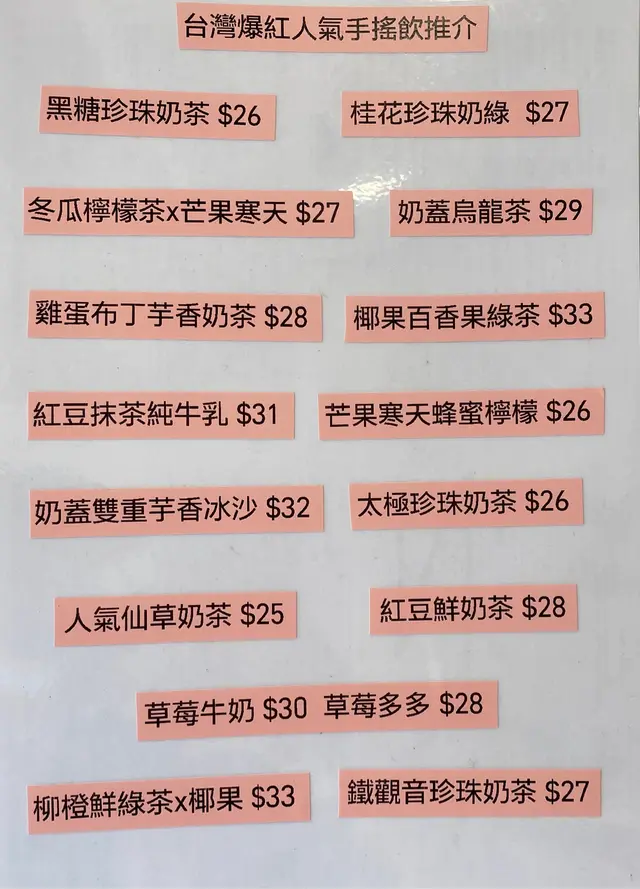 台灣爆紅人氣手搖飲推介
黑糖珍珠奶茶 $26
桂花珍珠奶綠 $27
冬瓜檸檬茶x芒果寒天 $27
奶蓋烏龍茶 $29
雞蛋布丁芋香奶茶 $28
椰果百香果綠茶 $33
紅豆抹茶純牛乳 $31
芒果寒天蜂蜜檸檬 $26
奶蓋雙重芋香冰沙 $32
太極珍珠奶茶 $26
人氣仙草奶茶 $25
紅豆鮮奶茶 $28
草莓牛奶 $30 草莓多多 $28
柳橙鮮綠茶x椰果 $33
鐵觀音珍珠奶茶 $27